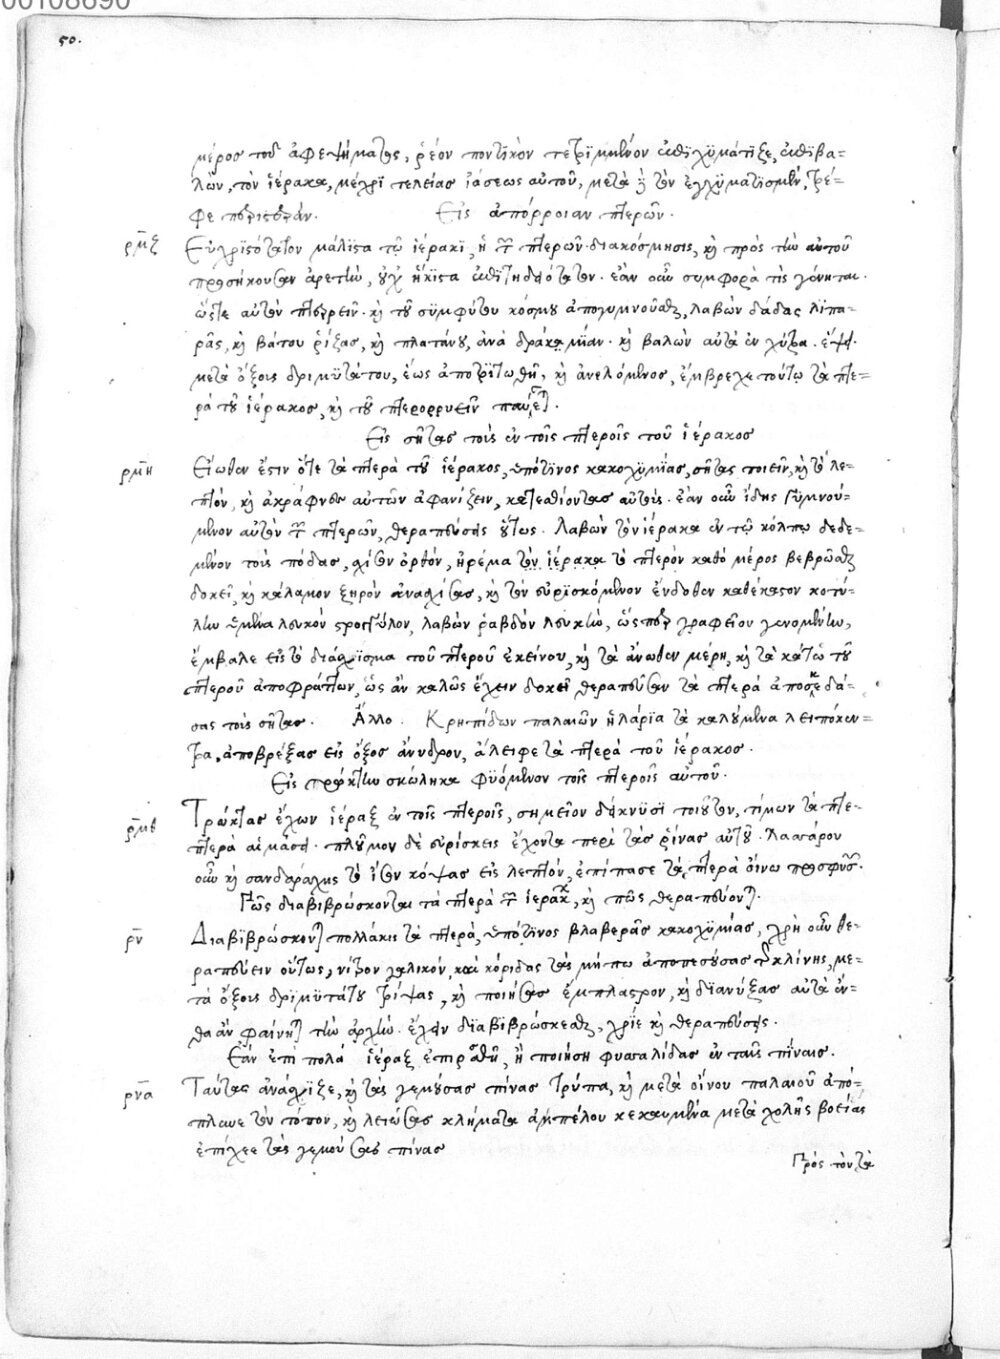 00108690
50.
μέρος τοῦ ἀφεψήματος, ῥέον ποντικὸν τετριμμένον ἐπεγχυμάτιζε, ἐπιβα-
λὼν, τὸν ἱέρακα, μέχρι τελείας ἰάσεως αὐτοῦ, μετὰ δὲ τὸν ἐγχυματισμὸν, τρέ-
φε περιστεράν. Εἰς ἀπόρροιαν πτερῶν.
ρμζ Εὐχρηστότατον μάλιστα τῷ ἱέρακι, ἡ τῶν πτερῶν διακόσμησις, καὶ πρὸς τὴν αὐτοῦ
προσήκουσαν ἀρετὴν, οὐχ ἥκιστα ἐπιτηδειότατον. ἐὰν οὖν συμφορά τις γένηται.
ὥστε αὐτὸν πτερρεῖν. καὶ τοῦ συμφύτου κόσμου ἀπογυμνοῦσθαι, λαβὼν δᾷδας λιπα-
ρὰς, καὶ βάτου ῥίζας, καὶ πλατάνου, ἀνὰ δράκα μίαν. καὶ βαλὼν αὐτὰ ἐν χύτρᾳ. ἕψει.
μετὰ ὄξους δριμυτάτου, ἕως ἀποτριτωθῇ, καὶ ἀνελόμενος, ἔμβρεχε τούτῳ τὰ πτε-
ρὰ τοῦ ἱέρακος, καὶ τοῦ πτερορρυεῖν παύσεται.
Εἰς σῆτας τοὺς ἐν τοῖς πτεροῖς τοῦ ἱέρακος
ρμη Εἴωθεν ἔστιν ὅτε τὰ πτερὰ τοῦ ἱέρακος, ὑπό τινος κακοχυμίας, σῆτας ποιεῖν, καὶ τὸ λε-
πτὸν, καὶ ἀκραιφνὲς αὐτῶν ἀφανίζειν, κατεσθίοντας αὐτούς. ἐὰν οὖν ἴδῃς γυμνού-
μενον αὐτὸν τῶν πτερῶν, θεραπεύσεις οὕτως. Λαβὼν τὸν ἱέρακα ἐν τῷ κόλπῳ δεδε-
μένον τοὺς πόδας, σχίσον ὀρθὸν, ἠρέμα τὸν ἱέρακα τὸ πτερὸν καθὸ μέρος βεβρῶσθαι
δοκεῖ, καὶ κάλαμον ξηρὸν ἀνασχίσας, καὶ τὸν εὑρισκόμενον ἔνδοθεν καθέκαστον κοτύ-
λην ὑμένα λευκὸν στρογγύλον, λαβὼν ῥάβδον λευκὴν, ὥσπερ γραφεῖον γενομένην,
ἔμβαλε εἰς τὸ διάσχισμα τοῦ πτεροῦ ἐκείνου, καὶ τὰ ἄνωθεν μέρη, καὶ τὰ κάτω τοῦ
πτεροῦ ἀποφράττων, ὡς ἂν καλῶς ἔχειν δοκεῖ θεραπεῦσαι τὰ πτερὰ ἀποσκεδά-
σας τοὺς σῆτας. Ἄλλο. Κρηπίδων παλαιῶν ἡλάρια τὰ καλούμενα λειπόκεν-
τρα, ἀποβρέξας εἰς ὄξος ἄνυδρον, ἄλειφε τὰ πτερὰ τοῦ ἱέρακος.
Εἰς τρώκτην σκώληκα φυόμενον τοῖς πτεροῖς αὐτοῦ.
ρμθ Τρώκτας ἔχων ἱέραξ ἐν τοῖς πτεροῖς, σημεῖον δείκνυσι τοιοῦτον, τίμων τὰ πτε-
πτερὰ αἱμάσσει. πλοῦμον δὲ εὑρίσκεις ἔχοντα περὶ τὰς ῥίνας αὐτοῦ. Λασάρου
οὖν καὶ σανδαράχης τὸ ἴσον κόψας εἰς λεπτὸν, ἐπίπασε τὰ πτερὰ οἴνῳ προσφυράσας.
Πῶς διαβιβρώσκονται τὰ πτερὰ τῶν ἱεράκων, καὶ πῶς θεραπεύονται.
ρν Διαβιβρώσκονται πολλάκις τὰ πτερὰ, ὑπό τινος βλαβερᾶς κακοχυμίας, χρὴ οὖν θε-
ραπεύειν οὕτως, νίτρον χαλικὸν, καὶ κόριδας τὰς μήπω ἀποπεσούσας τῆς κλίνης, με-
τὰ ὄξους δριμυτάτου τρίψας, καὶ ποιήσας ἔμπλαστρον, καὶ διανύξας αὐτὰ ἔν-
θα ἂν φαίνηται τὴν ἀρχὴν ἔχειν διαβιβρώσκεσθαι, χρῖε καὶ θεραπεύσεις.
Ἐὰν ἐπιπολὰ ἱέραξ ἐπιρθῇ, ἢ ποιήσῃ φυσαλίδας ἐν ταῖς πίνναις.
ρνα Ταύτας ἀνάσχιζε, καὶ τὰς γεμούσας πίνας τρύπα, καὶ μετὰ οἴνου παλαιοῦ ἀπό-
πλυνε τὸν τόπον, καὶ λειώσας κλήματα ἀμπέλου κεκαυμένα μετὰ χολῆς βοείας
ἐπίχεε τὰς γεμούσας πίνας
Πρὸς τὸν τὰ